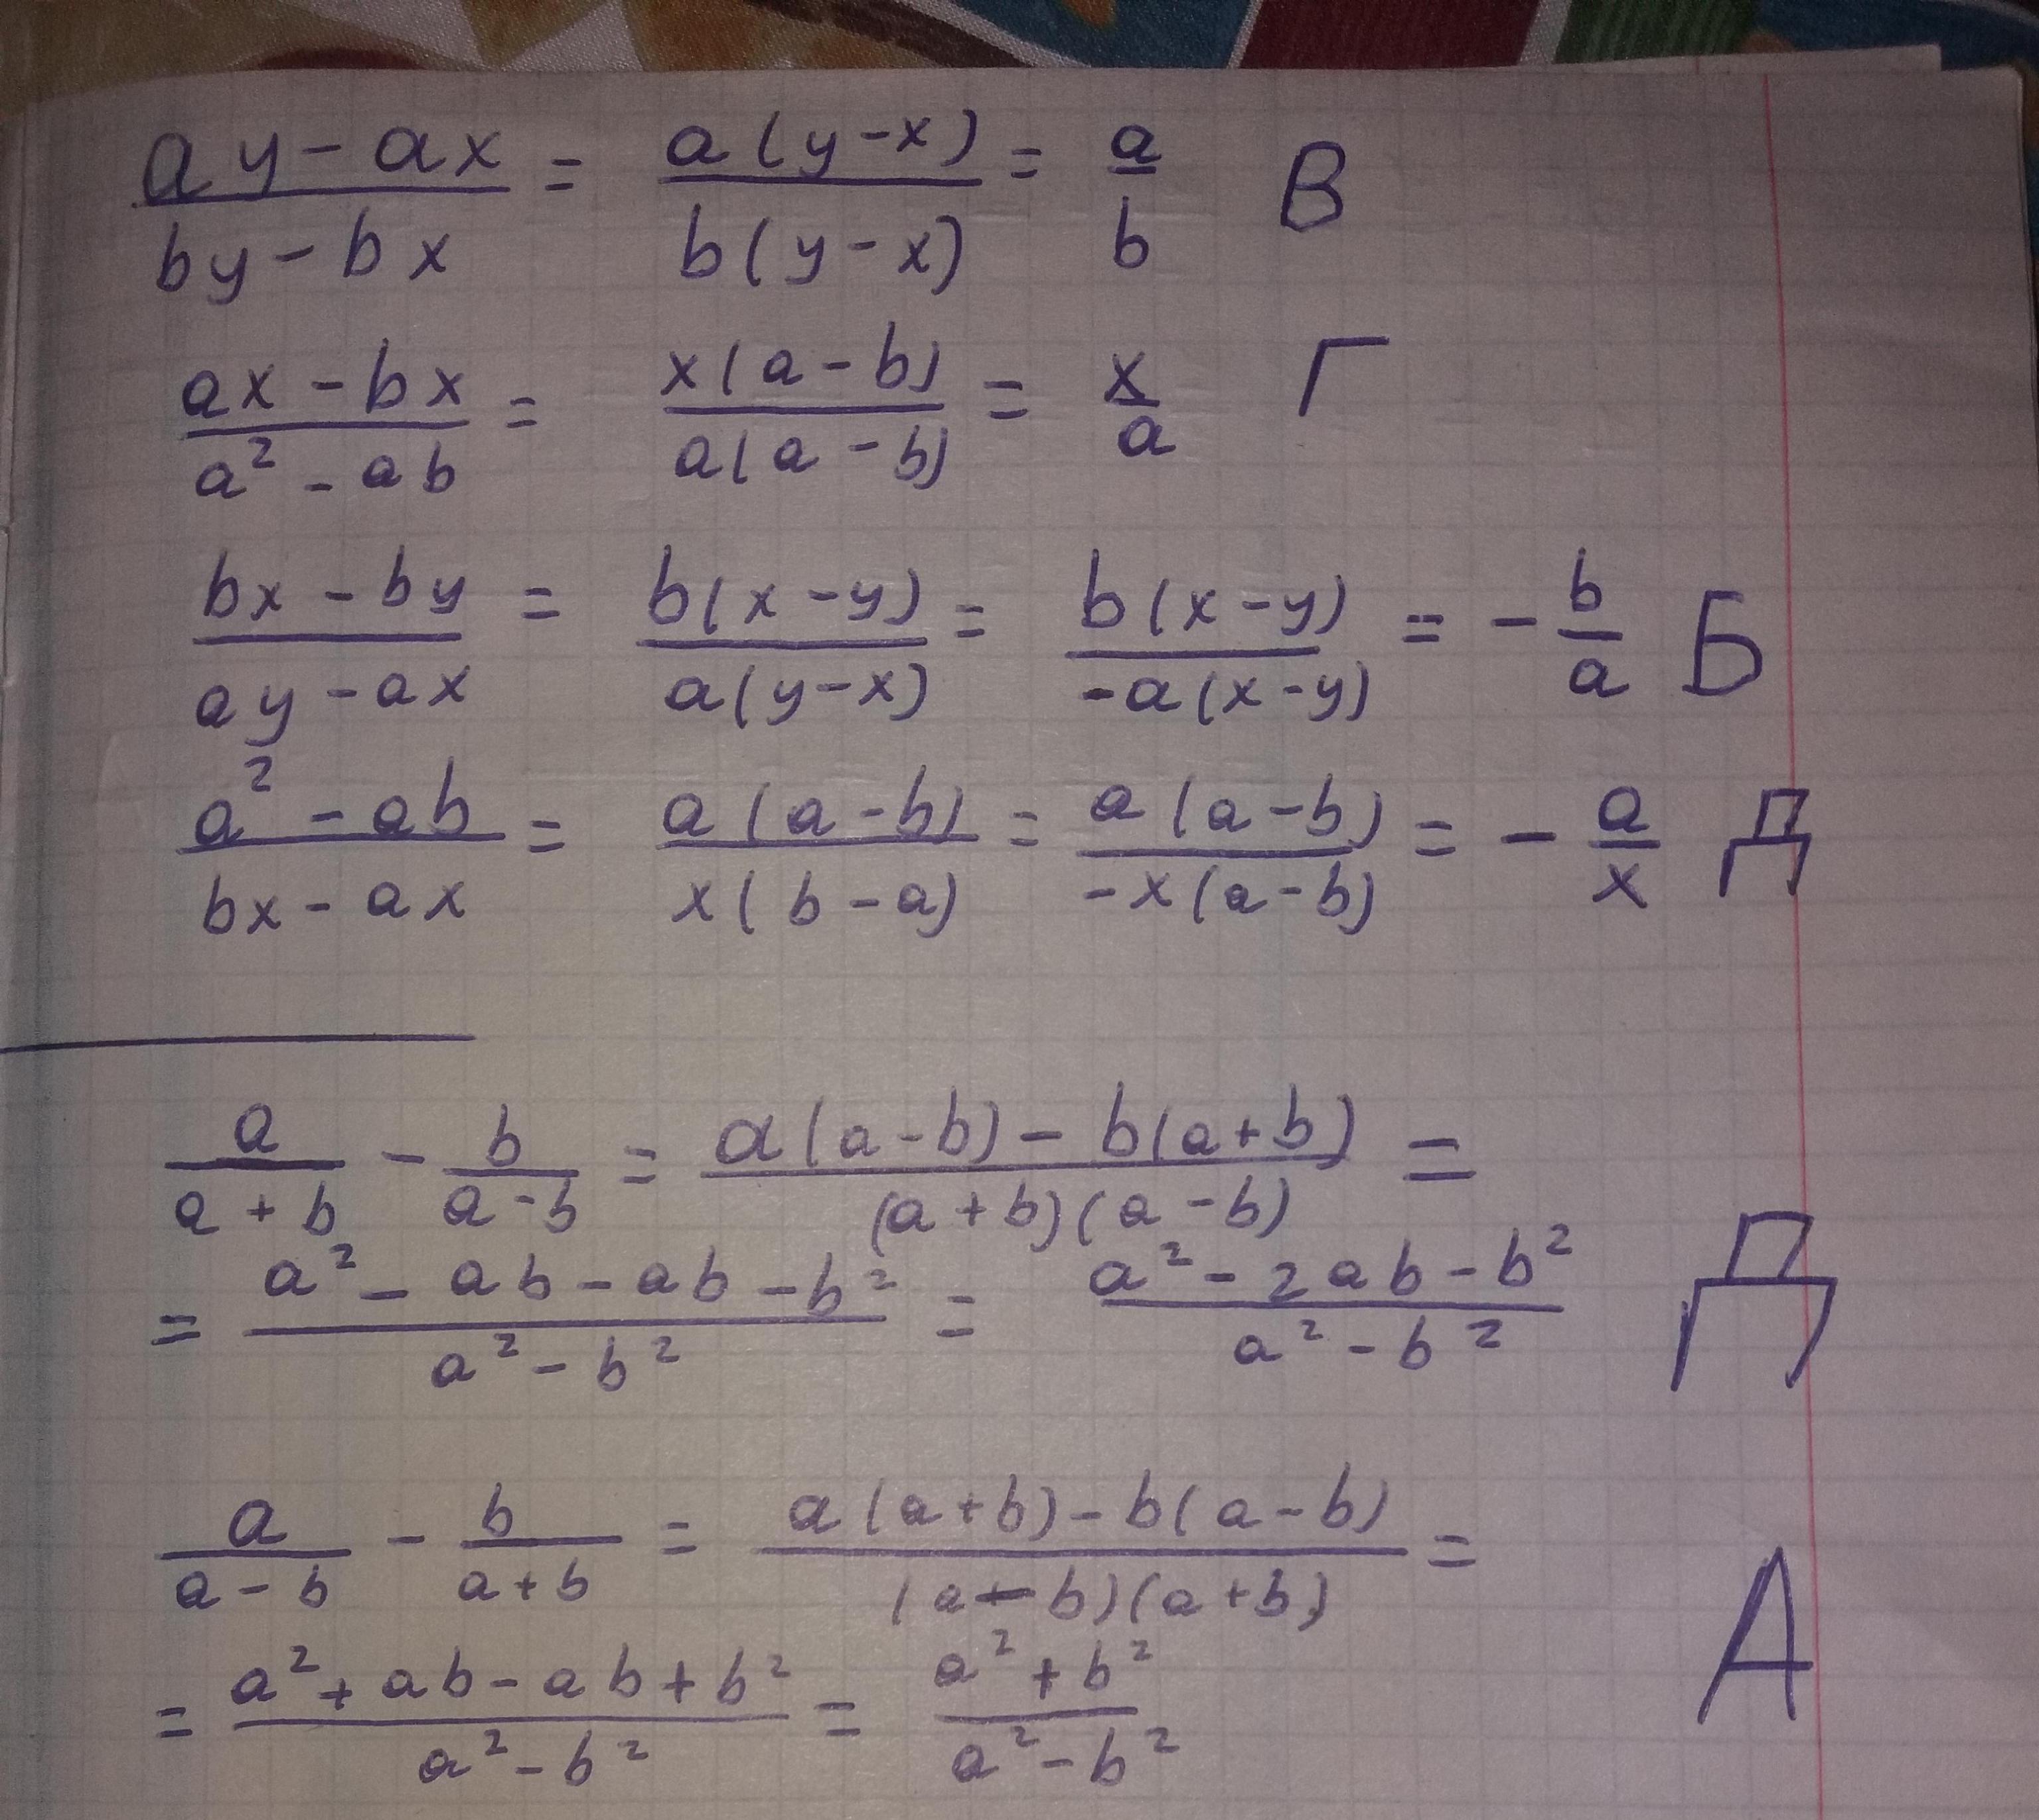 (ay-ax)/(by-bx) = (a(y-x))/(b(y-x)) = a/b В
(ax-bx)/(a²-ab) = (x(a-b))/(a(a-b)) = x/a Г
(bx-by)/(ay-ax) = (b(x-y))/(a(y-x)) = (b(x-y))/(-a(x-y)) = -b/a Б
(a²-ab)/(bx-ax) = (a(a-b))/(x(b-a)) = (a(a-b))/(-x(a-b)) = -a/x Д
a/(a+b) - b/(a-b) = (a(a-b)-b(a+b))/((a+b)(a-b)) =
= (a²-ab-ab-b²)/(a²-b²) = (a²-2ab-b²)/(a²-b²) Д
a/(a-b) - b/(a+b) = (a(a+b)-b(a-b))/((a-b)(a+b)) =
= (a²+ab-ab+b²)/(a²-b²) = (a²+b²)/(a²-b²) А